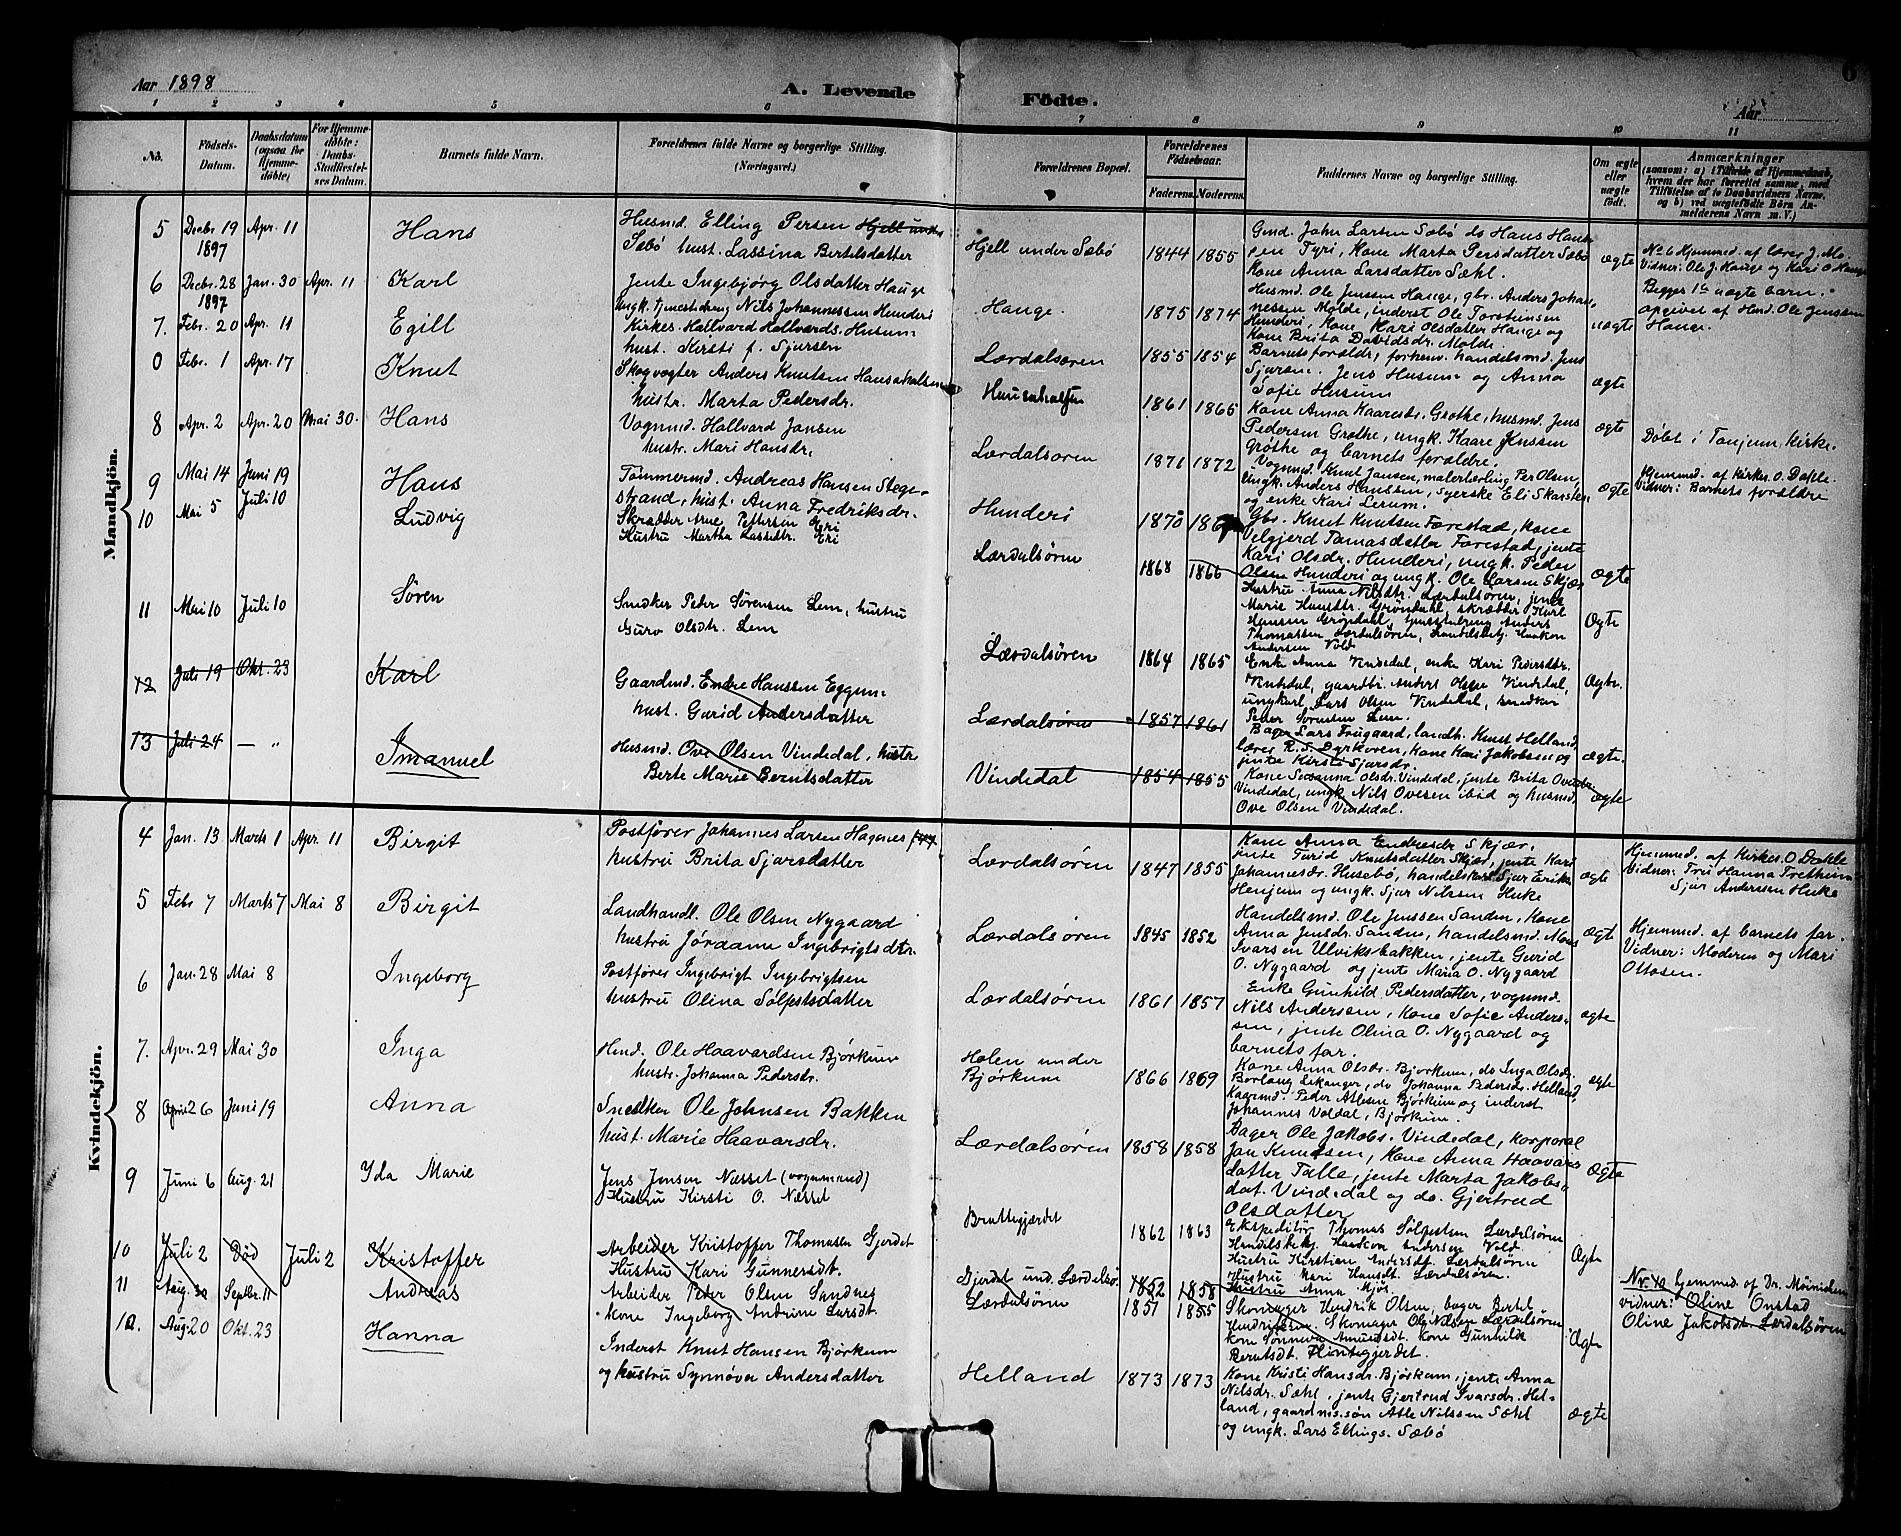 Aar 1898
A. Levende Födte.
Aar
6
1 2 3 4 5 6 7 8 9 10 11
No.
Födsels-Datum.
Daabsdatum (ogsaa for Hjemmedöbte)
For Hjemmedöbte: Daabs-Stadfæstelses Datum.
Barnets fulde Navn.
Forældrenes fulde Navne og borgerlige Stilling. (Næringsvei.)
Forældrenes Bopæl.
Forældrenes Födselsaar.
Faderens. Moderens.
Faddernes Navne og borgerlige Stilling.
Om ægte eller uægte födt.
Anmærkninger
(saasom: a) i Tilfælde af Hjemmedaab, hvem der har forrettet samme, med Tilföielse af to Daabsvidners Navne, og b) ved uægtefödte Börn Anmelderens Navn m. V.)
Mandkjön.
5 Decbr 19 1897 Apr. 11 Hans
Husmd. Elling Persen Hjell under
Sæbø hust. Lassina Bertelsdatter
Hjell under Sæbø 1844 1855
Gmd. John Larsen Sæbø do Hans Hansen
Tyri, Kone Marta Persdatter Sæbø
Kone Anna Larsdatter Sæhl.
ægte
6 Decbr. 28 1897 Jan. 30 Apr. 11 Karl
Jente Ingebjørg Olsdatter Hauge
Ungk. Tjenestedreng Nils Johannessen Hunderi
Hauge. 1875 1874
Husmd. Ole Jenssen Hauge, gbr. Anders Johannessen
Molde, inderst Ole Torsteinsen
Hunderi, Kone Kari Olsdatter Hauge og
Kone Brita Davidsdr. Molde.
uægte
No 6 Hjemmed. af lærer J. Mo.
Vidner: Ole J. Hauge og Kari O. Hauge
Begges 1ste uægte barn.
opgivet af Hmd. Ole Jenssen
Hauge.
7. Febr. 20 Apr. 11 Egill
Kirkes. Hallvard Hallvards. Husum
hust. Kirsti f. Sjursen
Lærdalsøren 1855 1854
Barnets foraldr., forhenv. handelsmd. Jens
Sjursen. Jens Husum og Anna
Sofie Husum
ægte
0 Febr. 1 Apr. 17 Knut
Skogvogter Anders Knutsen Hansahalsen
hustr. Marta Pedersdr.
1861 1865
Kone Anna Kaaresdr. Grøthe, husmd. Jens
Pedersen Grøthe, ungk. Kaare Jenssen
Grøthe og barnets forældre.
ægte
Døbt i Tonjum Kirke.
8 Apr. 2 Apr. 20 Mai 30. Hans
Vognmd. Hallvard Jansen
hustr. Mari Hansdr.
Lærdalsøren 1871 1872
Vognmd. Knut Jansen, malerlærling Per Olsen,
ungk. Anders Hanssen, Syerske Eli Skarsten
og enke Kari Lerum.
ægte
Hjemmed. af Kirkes. O. Dakle.
Vidner: Barnets forældre
9 Mai 14 Juni 19 Hans
Tømmermd. Andreas Hansen Stegestrand,
hust. Anna Fredriksdr.
Hunderi 1870
Gbr. Knut Knutsen Færestad, kone
Velgjerd Tomasdatter Færestad, jente
Kari Olsdr. Hunderi, ungk. Peder
Olsen Hunderi og ungk. Ole Larsen Skjær
Ægte
10 Mai 5 Juli 10 Ludvig
Skrædder Arne Pettersen Eri
Hustru Martha Lassedtr. Eri
Lærdalsøren 1868 1866
Hustru Anna Nilsdtr. Lærdalsøren, jente
Marie Hansdtr. Grøndahl, skrædder Karl
Hansen Grøndahl, Anders
Thomassen Lærdalsøren, Handelsbetj. Haakon
Andersen Vold
Ægte
11 Mai 10 Juli 10 Søren
Snedker Peter Sørensen Lem, hustru
Guro Olsdtr. Lem
Lærdalsøren 1864 1865
Enke Anna Vindedal, enke Kari Pedersdtr.
Vindedal, gaardbr. Anders Olsen Vindedal,
ungkarl Lars Olsen Vindedal, snedker
Peder Sørensen Lem.
Ægte.
12 Juli 19 Okt. 23 Karl
Gaardmd. Endre Hanssen Eggum
hust. Gurid Andersdatter
Lærdalsøren 1857 1861
Bager Lars Frugaard, landh. Knut Helland
lærer R. S. Dyrkoren, Kone Kari Jakobsen og
jente Kirsti Sjursdr.
ægte.
13 Juli 24 — " Imanuel
Husmd. Ove Olsen Vindedal, hustr
Berte Marie Berntsdatter
Vindedal 1854 1855
Kone Susanna Olsdr. Vindedal, jente Brita Ovesdr.
Vindedal, ungk. Nils Ovesen ibid og husmd.
Ove Olsen Vindedal.
ægte
Kvindekjön.
4 Jan. 13 Marts 1 Apr. 11 Birgit
Postfører Johannes Larsen Hagenes
hustru Brita Sjursdatter
Lærdalsøren 1847 1855
Kone Anna Endresdr Skjær.
jente Turid Knutsdatter Skjær, jente Kari
Johannesdr. Husebø, handelskar Sjur Eriks.
Henjum og ungk. Sjur Nilssen Huke
ægte
Hjemmed. af Kirkes. O Dakle
Vidner: Fru Hanna Trethun
Sjur Andersen Huke
5 Febr 7 Marts 7 Mai 8 Birgit
Landhandl. Ole Olsen Nygaard
hustru Jórdame Ingebrigtsdtr.
Lærdalsøren 1845 1852
Handelsmd. Ole Jenssen Sanden, Kone
Anna Jensdr. Sanden, handelsmd. Mons
Ivarsen Ulviksbakken, jente Gurid
O. Nygaard og jente Maria O. Nygaard
ægte
Hjemmed. af barnets far.
Vidner: Moderen og Mari
Ottosen.
6 Jan. 28 Mai 8 Ingeborg
Postfører Ingebrigt Ingebrigtsen
hustru Olina Sølfestsdatter
Lærdalsøren 1861 1857
Enke Gunhild Pedersdatter, vognmd.
Nils Andersen, Kone Sofie Anderssen,
jente Olina O. Nygaard og
barnets far.
ægte
7. Apr. 29 Mai 30 Inga
Hmd. Ole Haavardsen Bjørkum
hustr. Johanna Pedersdr.
Holen under
Bjørkum 1866 1869
Kone Anna Olsdr. Bjørkum, do Inga Olsdr.
Borlaug Leikanger, do Johanna Pedersdr. Helland,
Kaarmd. Peder Atlesen Bjørkum og inderst
Johannes Voldal, Bjørkum.
ægte
8 April 26 Juni 19 Anna
Snedker Ole Johnsen Bakken
hust. Marie Haavarsdr.
Lærdalsøren 1858 1858
Bager Ole Jakobs. Vindedal, korporal
Jan Knudsen, Kone Anna Haavarsdatter
Talle, jente Marta Jakobsdat.
Vindedal og do. Gjertrud
Olsdatter
Ægte
9 Juni 6 Aug. 21 Yda Marie
Jens Jensen Næsset (vognmand)
Hustru Kirsti O. Næsset
Bruttegjærdet 1862 1863
Ekspeditør Thomas Sølfesten Lærdalsøren
Handelsbetj. Haakon Andersen Vold
Hustru Kirstian Andersdt. Lærdalsøren
Hustru Mari Hansdt. Lærdalsøren.
Hustru Anna Mjøs
Ægte
10 Juli 2 Død Juli 2 Kristoffer
Arbeider Kristoffer Thomasen Gjerdet
Hustru Kari Gunnersdt.
Gjerdet und. Lærdalsø. 1852 1858
Nr. 10 hjemmed. af Dr. Münichen
vidner: Oline Onstad
Oline Jakobsdt. Lærdalsøren
11 Aug. Septbr. 11 Andreas
Arbeider Peter Olsen Sandneg
Kone Ingeborg Andrine Larsdt.
Lærdalsøren 1851 1855
Skomager Hendrik Olsen, bager Bertel
Hendriksen, Skomager Ole Nilsen Lærdalsøren
Kone Sønneva Amundsdt. Kone Gunhilde
Berntsdt. Flintegjerdet.
Ægte
12. Aug. 20 Okt. 23 Hanna
Inderst Knut Hansen Bjørkum
og hustru Synnøva Andersdatter
Helland 1873 1873
Kone Kristi Hansdr. Bjørkum, jente Anna
Nilsdr. Sæhl, jente Gjertrud Ivarsdr. Helland,
gaardms.søn Atle Nilssen Sæhl
og ungk. Lars Ellings. Sæbø
Ægte